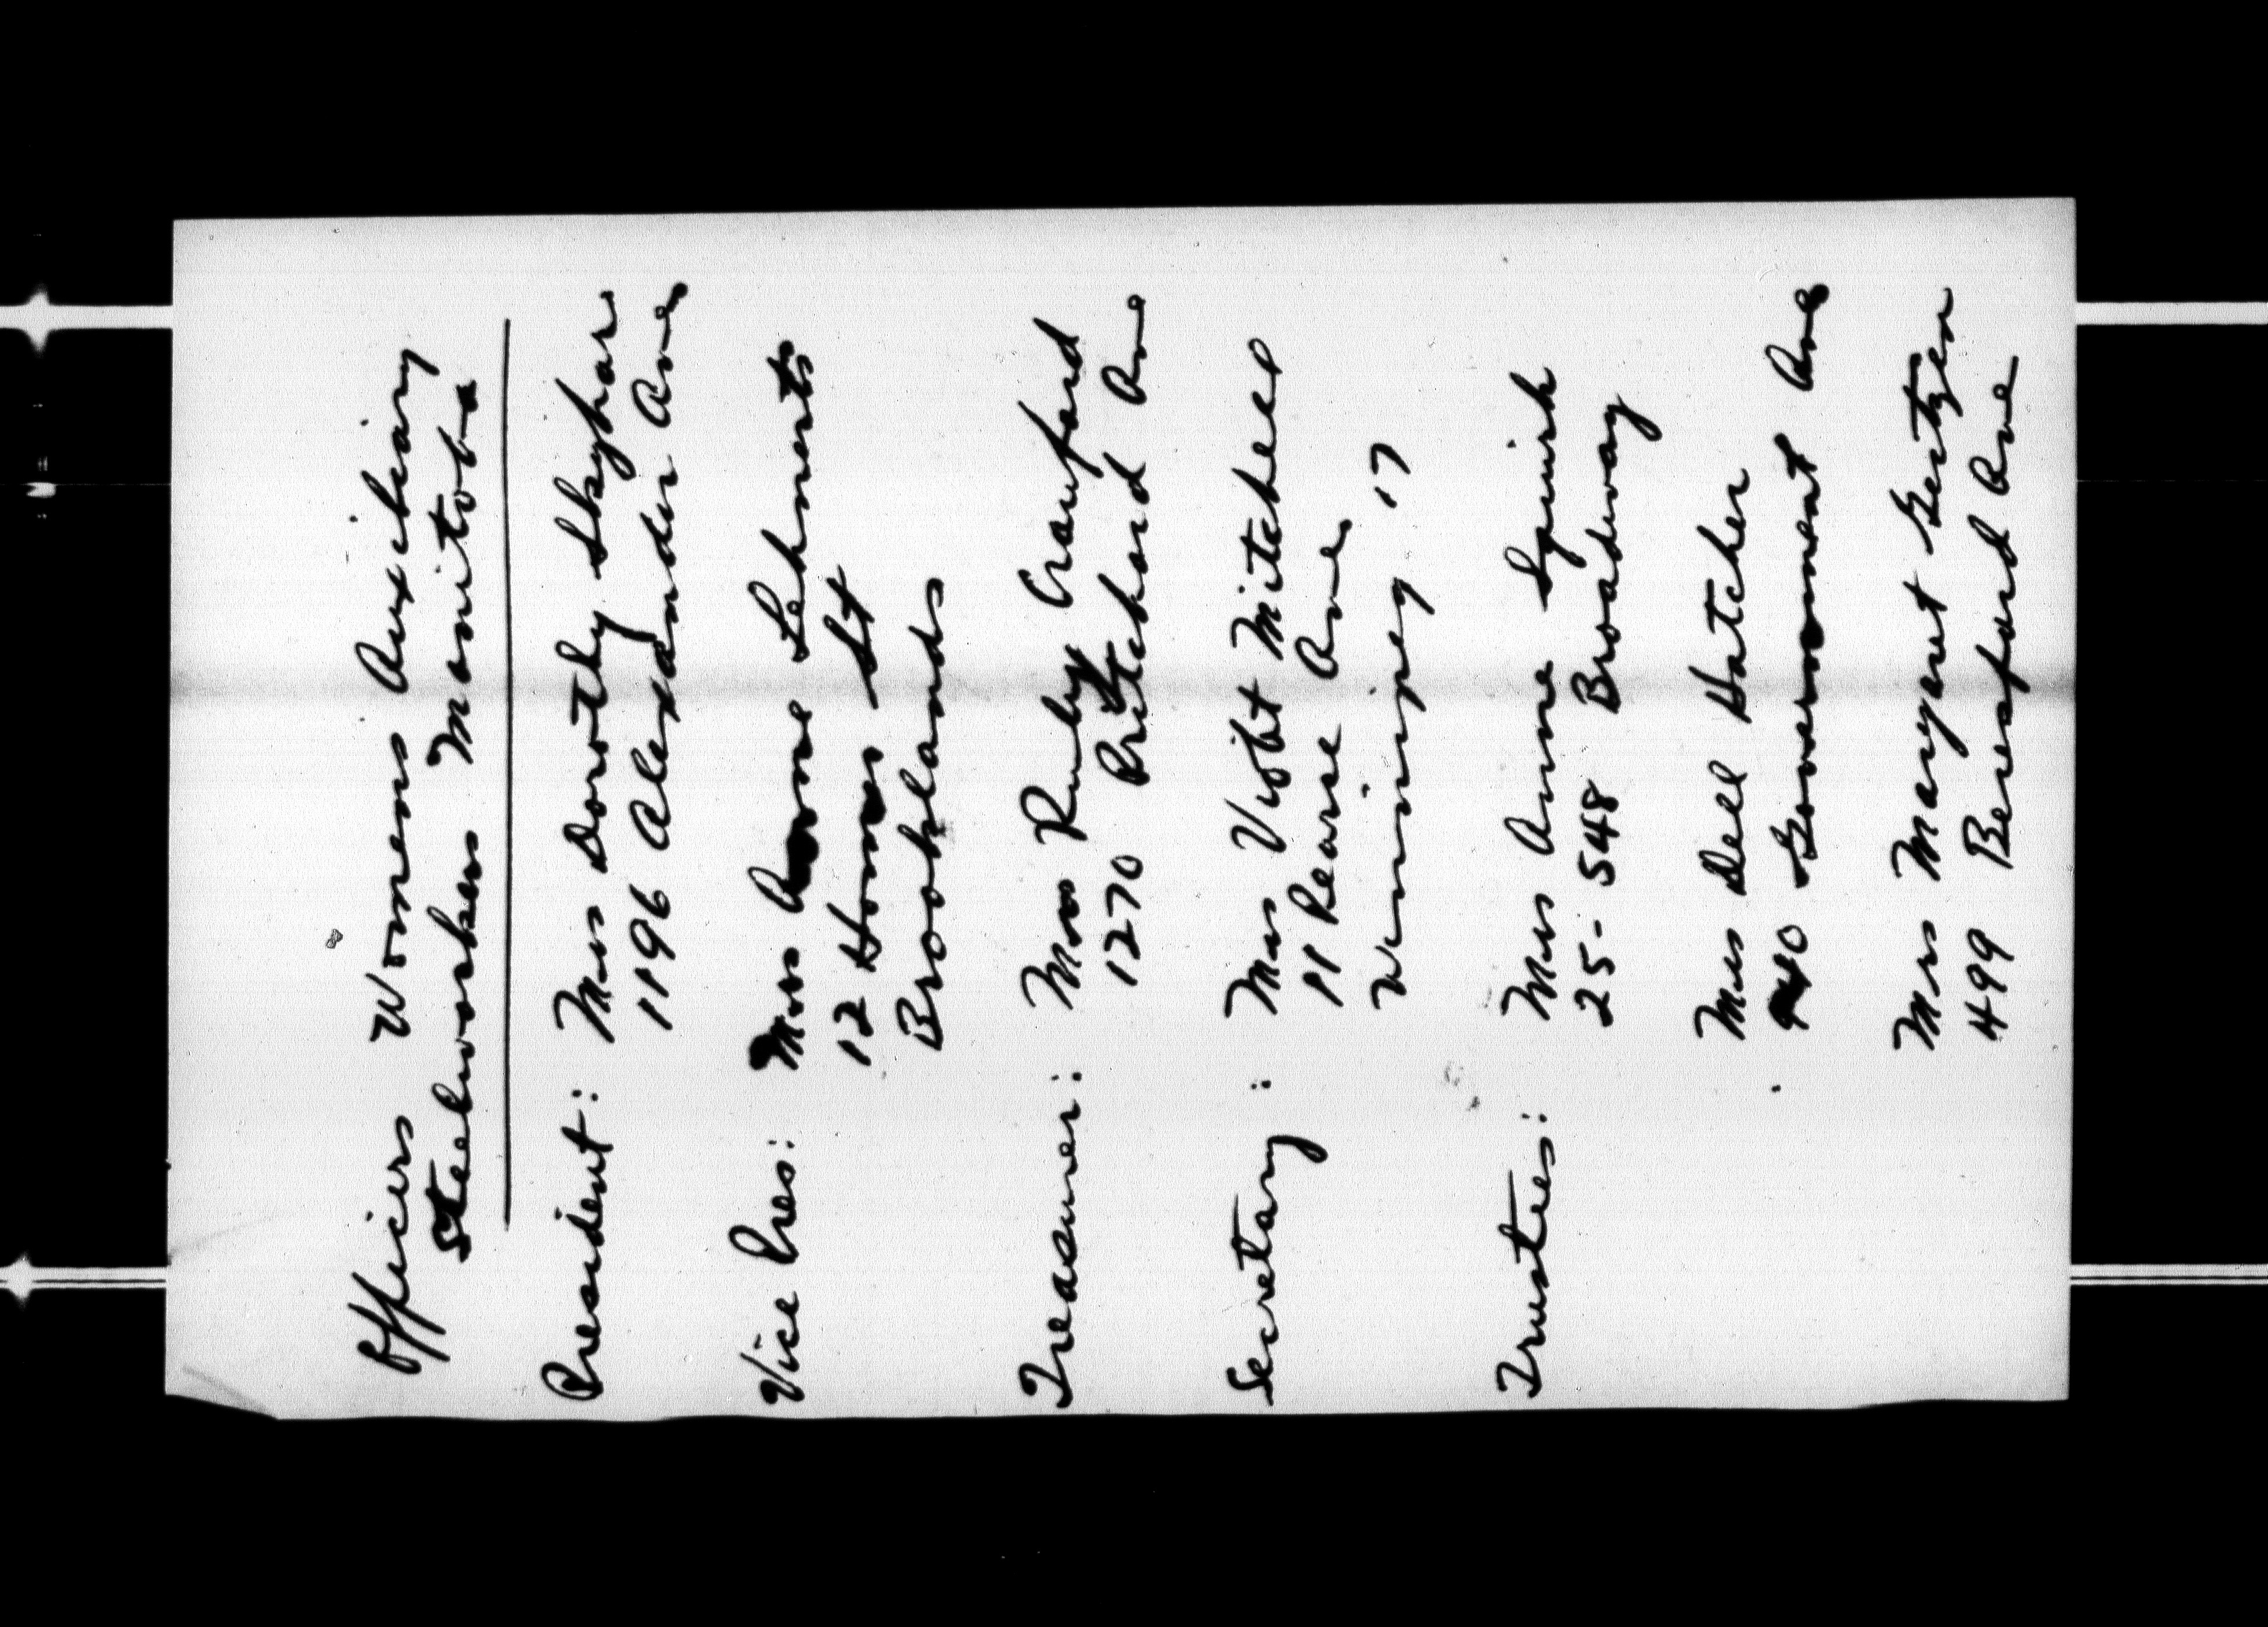 Officers Womens Auxiliary
Steelworkers Manitoba
President: Mrs Dorothy Skyhar
1196 Alexander Ave
Vice Pres: Mrs Anne Lehmants
12 Homes St
Brooklands
Treasurer: Mrs Ruby Crawford
1270 Pritchard Ave
Secretary: Mrs Violet Mitchell
11 Pearce Ave
Winnipeg 17
Trustees: Mrs Anne Squirk
25-548 Broadway
Mrs Dell Hatcher
940 Government Ave
Mrs Margret Gertzen
499 Beresford Ave